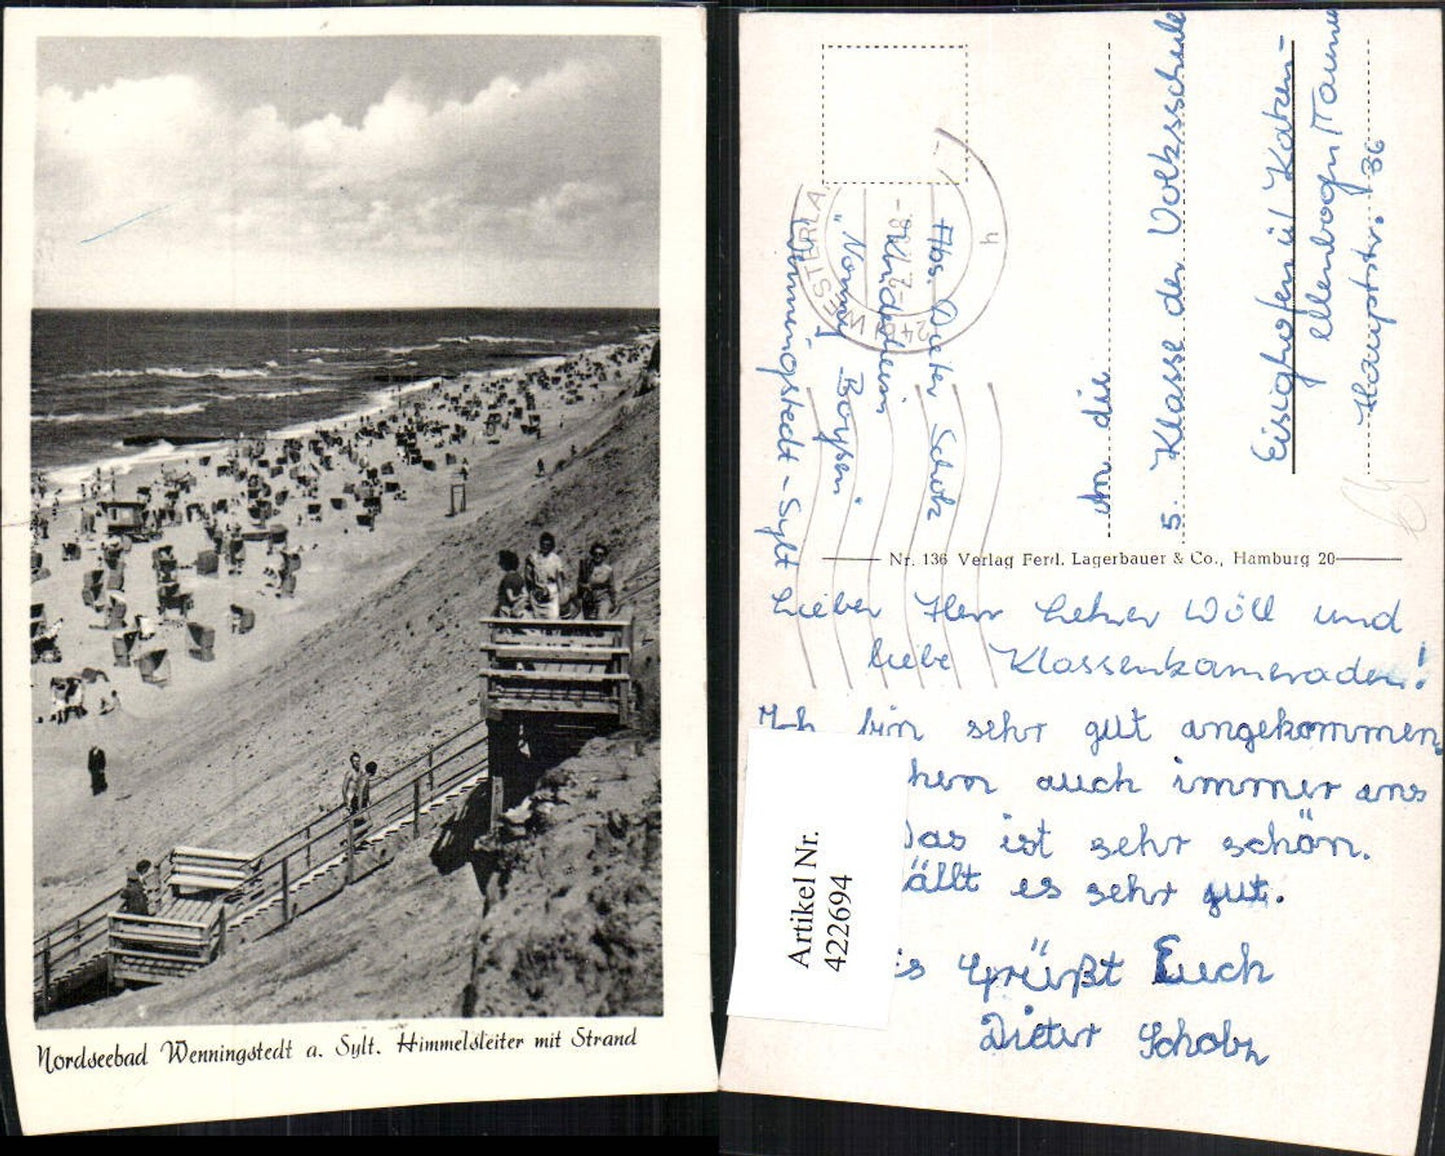 Nordseebad Wenningstedt a. Sylt. Himmelsleiter mit Strand
Abs. Dieter Scholz
Kinderheim
"Nonny Boysen"
Wenningstedt - Sylt
WESTERLA
An die
5. Klasse der Volksschule
Eisighofen ü/ Katzen-
ellenbogen/Taunus
Hauptstr. 36
Nr. 136 Verlag Ferd. Lagerbauer & Co., Hamburg 20
Lieber Herr Lehrer Wöll und
liebe Klassenkameraden!
Ich bin sehr gut angekommen,
auch immer ans
Das ist sehr schön.
ällt es sehr gut.
Grüßt Euch
Dieter Scholz
Artikel Nr.
422694